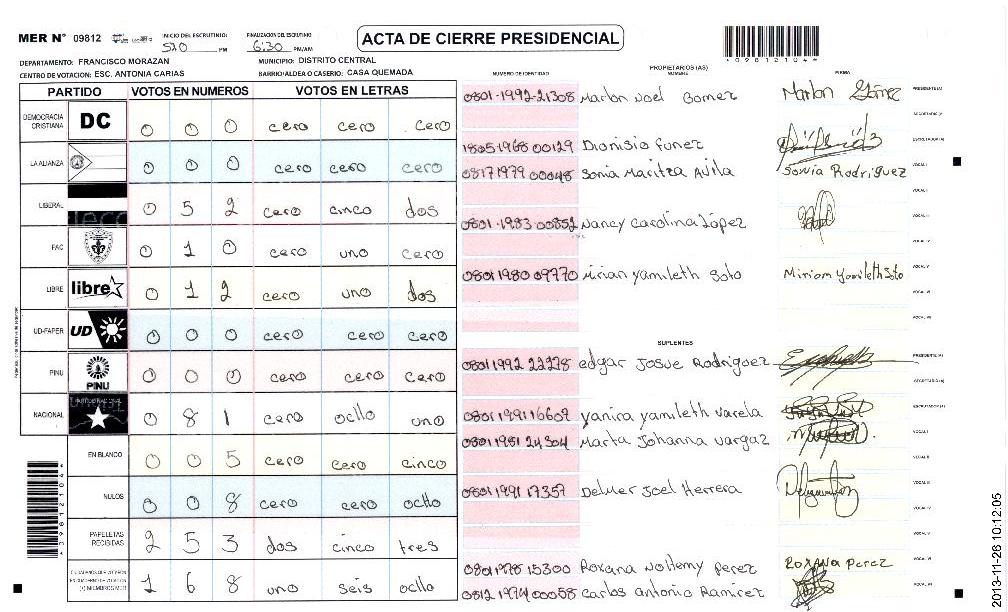 MER N° 09812
INICIO DEL ESCRUTINIO: 520 PM
FINALIZACION DEL ESCRUTINIO 6:30 PM/AM
ACTA DE CIERRE PRESIDENCIAL
*09812104*
DEPARTAMENTO: FRANCISCO MORAZAN
MUNICIPIO: DISTRITO CENTRAL
CENTRO DE VOTACION: ESC. ANTONIA CARIAS
BARRIO/ALDEA O CASERIO: CASA QUEMADA
PARTIDO VOTOS EN NUMEROS VOTOS EN LETRAS
DEMOCRACIA CRISTIANA DC 0 0 0 cero cero cero
LA ALIANZA 0 0 0 cero cero cero
LIBERAL 0 5 2 cero cinco dos
FAC 0 1 0 cero uno cero
LIBRE libre 0 1 2 cero uno dos
UD-FAPER UD 0 0 0 cero cero cero
PINU PINU 0 0 0 cero cero cero
NACIONAL 0 8 1 cero ocho uno
EN BLANCO 0 0 5 cero cero cinco
NULOS 0 0 8 cero cero ocho
PAPELETAS RECIBIDAS 2 5 3 dos cinco tres
CIUDADANOS QUE VOTARON EN CUADERNO DE VOTACION (+) MIEMBROS MER 1 6 8 uno seis ocho
PROPIETARIOS (AS)
NUMERO DE IDENTIDAD NOMBRE FIRMA
0801-1992-21308 Marlon Noel Gomez Marlon Gómez PRESIDENTE(A)
SECRETARIO (A)
1805 1968 00129 Dionisio Funez ESCRUTADOR (A)
0817 1979 00048 Sonia Maritza Avila Sonia Rodriguez VOCAL I
VOCAL II
0801-1983 00852 Nancy Carolina López VOCAL III
VOCAL IV
0801 1980 09770 Mirian yamileth Soto Miriam Yamileth Soto VOCAL V
VOCAL VI
VOCAL VII
SUPLENTES
0801 1992 22278 edgar Josue Rodriguez PRESIDENTE (A)
SECRETARIO (A)
0801 1991 16609 yanira yamileth varela ESCRUTADOR (A)
0801 1981 24304 Marta Johanna vargaz VOCAL I
VOCAL II
0801 1991 17357 Delmer Joel Herrera VOCAL III
VOCAL IV
VOCAL V
0801 1978 15300 Roxana Nollemy perez Roxana Perez VOCAL VI
0812 1974 00058 Carlos antonio Ramirez VOCAL VII
*09812104*
2013-11-26 10:12:05